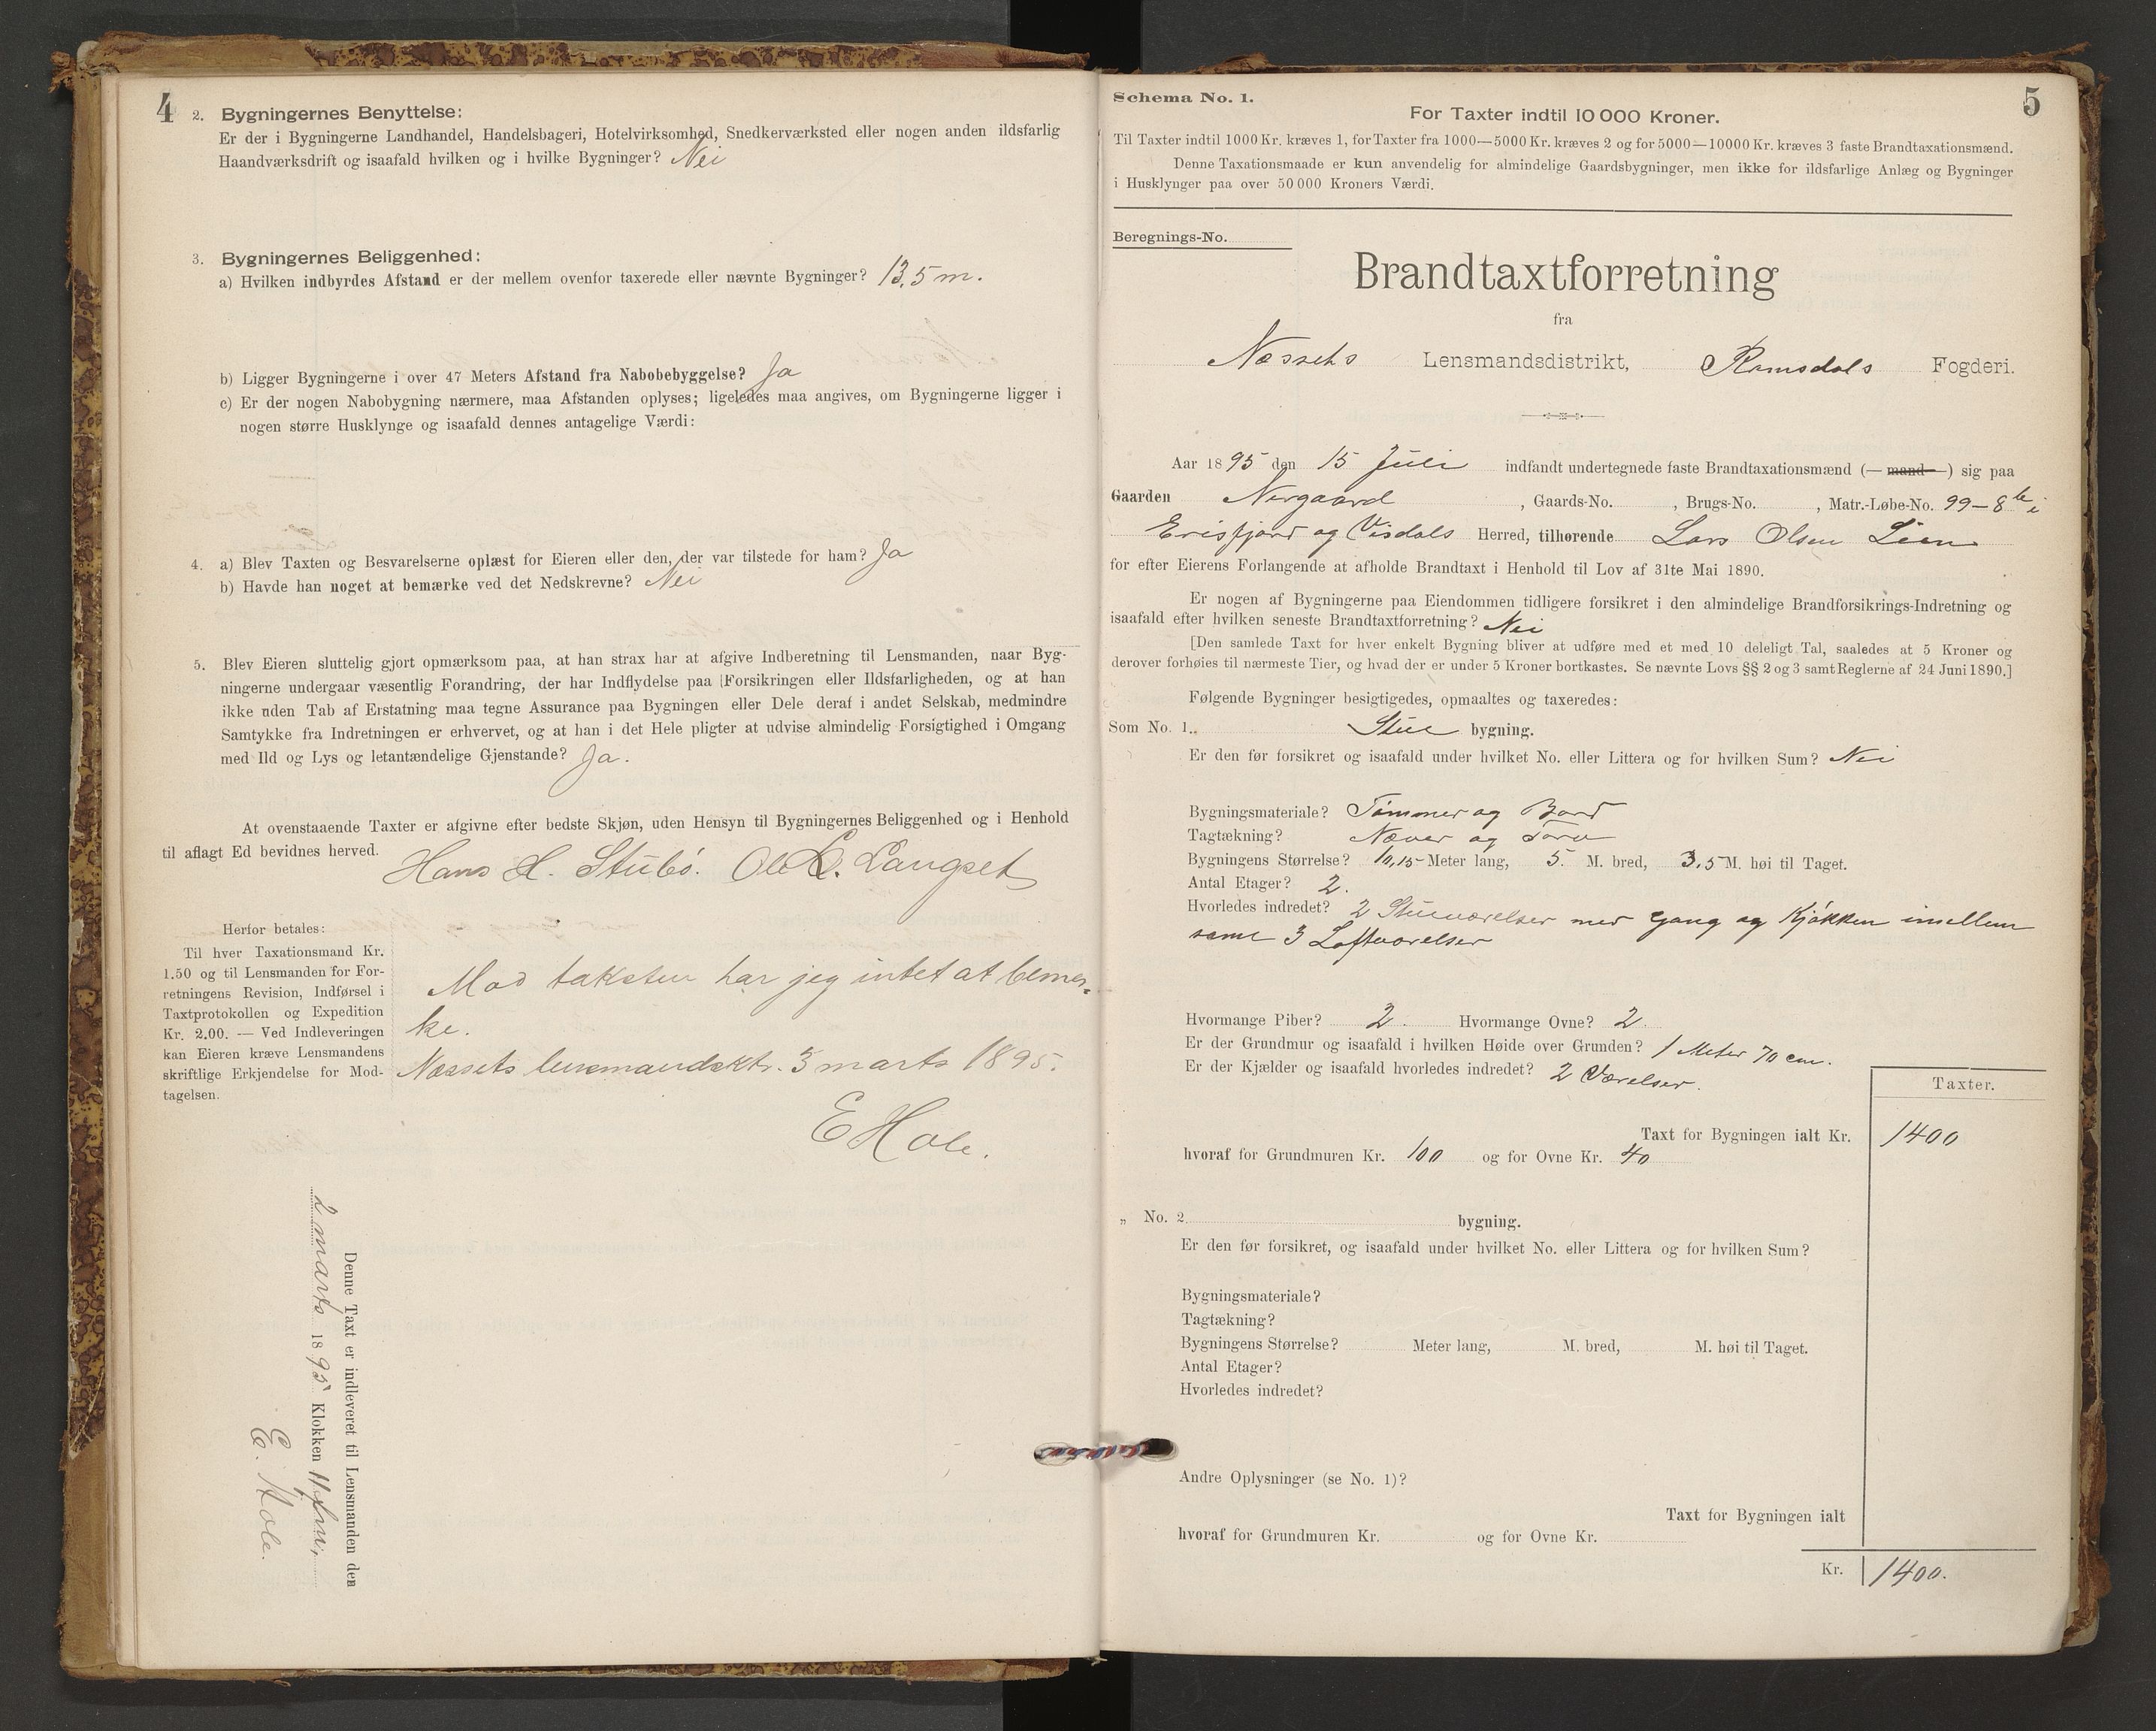 4
2. Bygningernes Benyttelse:
Er der i Bygningerne Landhandel, Handelsbageri, Hotelvirksomhed, Snedkerværksted eller nogen anden ildsfarlig
Haandværksdrift og isaafald hvilken og i hvilke Bygninger? Nei
3. Bygningernes Beliggenhed:
a) Hvilken indbyrdes Afstand er der mellem ovenfor taxerede eller nævnte Bygninger? 13,5 m.
b) Ligger Bygningerne i over 47 Meters Afstand fra Nabobebyggelse? Ja
c) Er der nogen Nabobygning nærmere, maa Afstanden oplyses; ligeledes maa angives, om Bygningerne ligger i
nogen større Husklynge og isaafald dennes antagelige Værdi:
4. a) Blev Taxten og Besvarelserne oplæst for Eieren eller den, der var tilstede for ham? Ja
b) Havde han noget at bemærke ved det Nedskrevne? Nei
5. Blev Eieren sluttelig gjort opmærksom paa, at han strax har at afgive Indberetning til Lensmanden, naar Byg-
ningerne undergaar væsentlig Forandring, der har Indflydelse paa Forsikringen eller Ildsfarligheden, og at han
ikke uden Tab af Erstatning maa tegne Assurance paa Bygningen eller Dele deraf i andet Selskab, medmindre
Samtykke fra Indretningen er erhvervet, og at han i det Hele pligter at udvise almindelig Forsigtighed i Omgang
med Ild og Lys og letantændelige Gjenstande? Ja.
At ovenstaaende Taxter er afgivne efter bedste Skjøn, uden Hensyn til Bygningernes Beliggenhed og i Henhold
til aflagt Ed bevidnes herved.
Hans H. Stubö. Ole L. Langset
Herfor betales:
Til hver Taxationsmand Kr.
1.50 og til Lensmanden for For-
retningens Revision, Indførsel i
Taxtprotokollen og Expedition
Kr. 2.00. — Ved Indleveringen
kan Eieren kræve Lensmandens
skriftlige Erkjendelse for Mod-
tagelsen.
Mod taksten har jeg intet at bemer-
ke.
Næssets lensmandsktr. 3 marts 1895.
E Hole.
Denne Taxt er indleveret til Lensmanden den
2 marts 1895 Klokken 11 fm.
E. Hole.
5
Schema No. 1.
For Taxter indtil 10 000 Kroner.
Til Taxter indtil 1000 Kr. kræves 1, for Taxter fra 1000—5000 Kr. kræves 2 og for 5000—10000 Kr. kræves 3 faste Brandtaxationsmænd.
Denne Taxationsmaade er kun anvendelig for almindelige Gaardsbygninger, men ikke for ildsfarlige Anlæg og Bygninger
i Husklynger paa over 50 000 Kroners Værdi.
Beregnings-No.
Brandtaxtforretning
fra
Næssets Lensmandsdistrikt, Romsdals Fogderi.
Aar 1895 den 15 Juli indfandt undertegnede faste Brandtaxationsmænd (—mand—) sig paa
Gaarden Nergaard , Gaards-No. , Brugs-No. , Matr.-Løbe-No. 99-8 b i
Erisfjord og Visdals Herred, tilhørende Lars Olsen Lien
for efter Eierens Forlangende at afholde Brandtaxt i Henhold til Lov af 31te Mai 1890.
Er nogen af Bygningerne paa Eiendommen tidligere forsikret i den almindelige Brandforsikrings-Indretning og
isaafald efter hvilken seneste Brandtaxtforretning? Nei
[Den samlede Taxt for hver enkelt Bygning bliver at udføre med et med 10 deleligt Tal, saaledes at 5 Kroner og
derover forhøies til nærmeste Tier, og hvad der er under 5 Kroner bortkastes. Se nævnte Lovs §§ 2 og 3 samt Reglerne af 24 Juni 1890.]
Følgende Bygninger besigtigedes, opmaaltes og taxeredes:
Som No. 1. Stue bygning.
Er den før forsikret og isaafald under hvilket No. eller Littera og for hvilken Sum? Nei
Bygningsmateriale? Tømmer og Bord
Tagtækning? Næver og Torv
Bygningens Størrelse? 10,15 Meter lang, 5. M. bred, 3,5 M. høi til Taget.
Antal Etager? 2.
Hvorledes indredet? 2 Stueværelser med Gang og Kjøkken imellem
samt 3 Loftværelser
Hvormange Piber? 2. Hvormange Ovne? 2.
Er der Grundmur og isaafald i hvilken Høide over Grunden? 1 Meter 70 cm.
Er der Kjælder og isaafald hvorledes indredet? 2 Værelser.
Taxter.
Taxt for Bygningen ialt Kr. 1400
hvoraf for Grundmuren Kr. 100 og for Ovne Kr. 40
„ No. 2 bygning.
Er den før forsikret, og isaafald under hvilket No. eller Littera og for hvilken Sum?
Bygningsmateriale?
Tagtækning?
Bygningens Størrelse? Meter lang, M. bred, M. høi til Taget.
Antal Etager?
Hvorledes indredet?
Andre Oplysninger (se No. 1)?
Taxt for Bygningen ialt
hvoraf for Grundmuren Kr. og for Ovne Kr.
Kr. 1400.